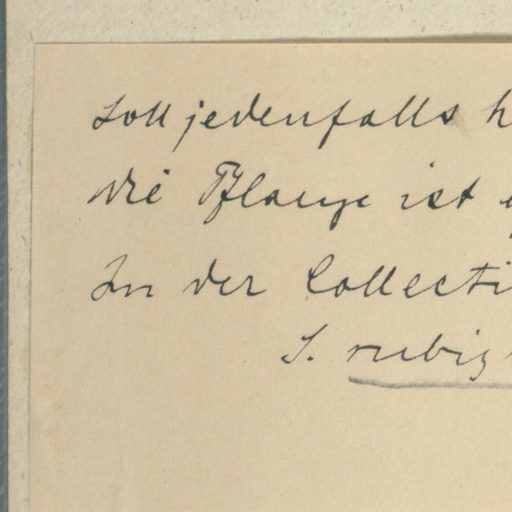 soll jedenfalls h
die Pflanze ist
In der Collecti
S. rubig